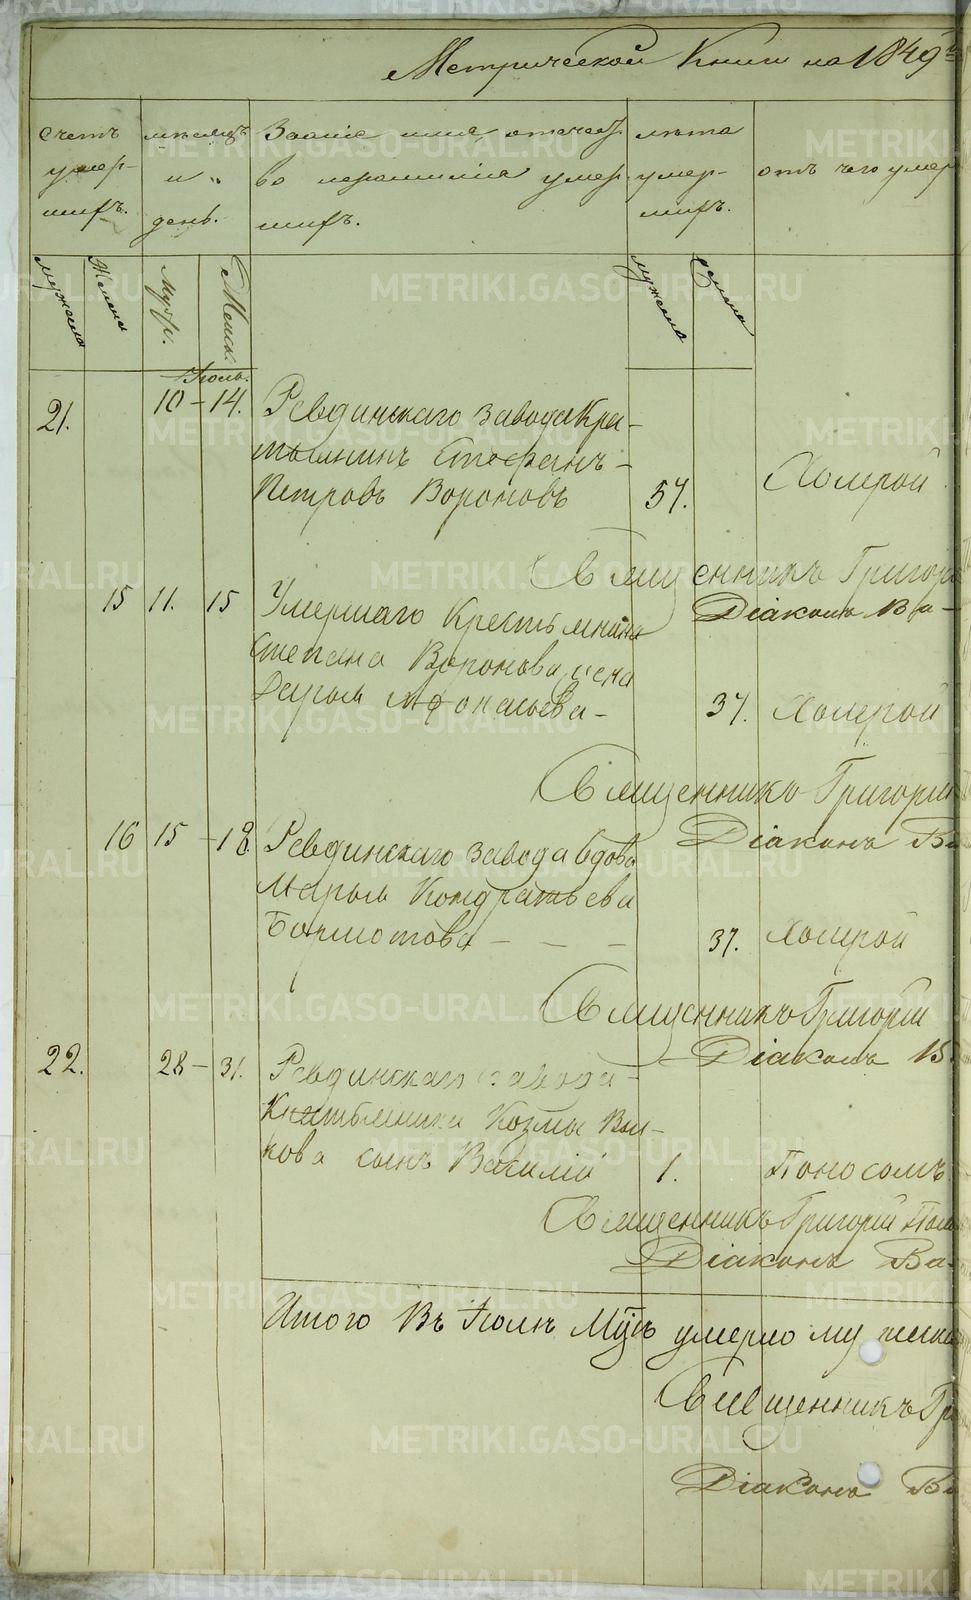 Метрической Книги на 1849й
Счетъ умер- шихъ.
мѣсяцъ и день.
Званіе имя отечест- во и фамилиа умер- шихъ.
лѣта умер- шихъ.
отъ чего умер
мужеска
женска
Мужс.
Женск.
мужеска
женска
Июль.
21. 10 - 14. Ревдинскаго завода Кре-
стьянинъ Стефанъ -
Петровъ Вороновъ 57. Холерой
Священникъ Григор
Діаконъ Ва-
15 11. 15 Умершаго Крестьянина
Степана Воронова жена
Дарья Афонасьева - 37. Холерой
Священникъ Григорій
Діаконъ Ва
16 15 - 18 Ревдинскаго завода вдова
Марья Кондратьева
Бормотова - - - 37. Холерой
Священникъ Григорій
Діаконъ В
22. 28 - 31. Ревдинскаго завода -
Крестьянина Козмы Вы-
кова сынъ Василій 1. Поносомъ
Священникъ Григорій Поп
Діаконъ Ва-
Итого Въ Июлѣ Мцѣ умерло мужеска
Священникъ Гр
Діаконъ Ва